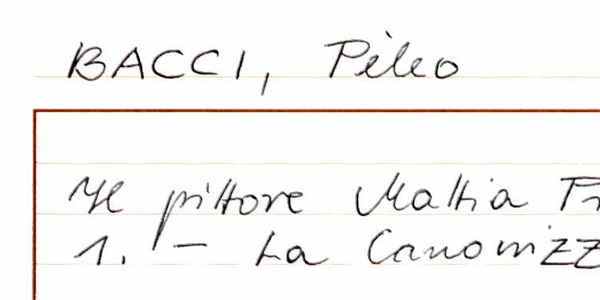 BACCI, Pèleo
Il pittore Mattia Pr
1. - La Canonizz